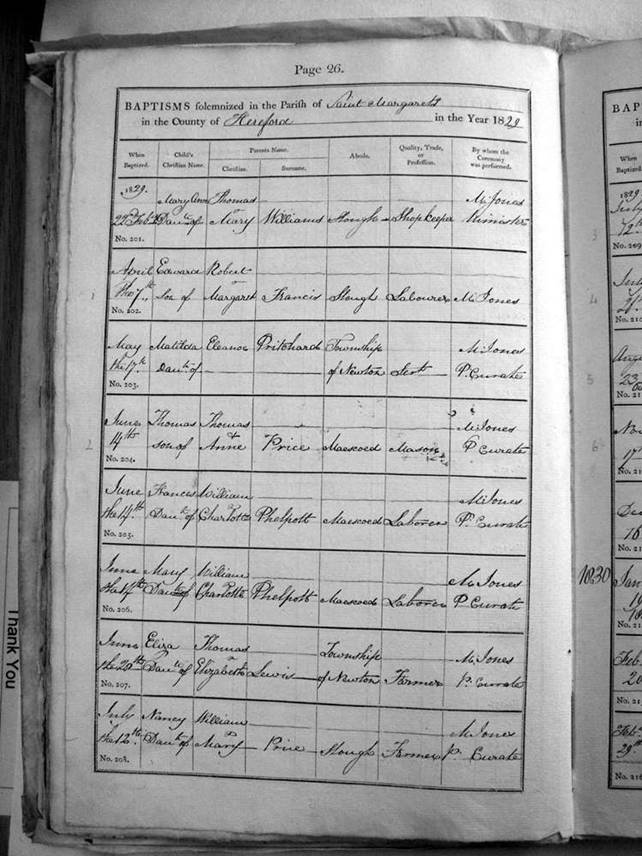 Page 26.
BAPTISMS solemnized in the Parish of Saint Margarets
in the County of Hereford in the Year 1829
When Baptized.
Child's Christian Name.
Parents Name.
Christian.
Surname.
Abode.
Quality, Trade, or Profession.
By whom the Ceremony was performed.
1829. Mary Ann Thomas Ms Jones
22d Feb Daur of Mary Williams Slough Shopkeeper Minister
No. 201.
April Edward Robert
the 7th Son of Margaret Francis Slough Labourer Ms Jones
No. 202.
May Matilda Eleanor Pritchard Township Ms Jones
the 17th Daur of of Newton Servt P. Curate
No. 203.
June Thomas Thomas Ms Jones
14th son of & Anne Price Maescoed Mason P Curate
No. 204.
June Frances William Ms Jones
the 14th Daur of Charlotte Phelpott Maescoed Laborer P. Curate
No. 205.
June Mary William Ms Jones
the 14th Daur of Charlotte Phelpott Maescoed Laborer P Curate
No. 206.
June Eliza Thomas Township Ms Jones
the 28th Daur of Elizabeth Lewis of Newton Farmer P. Curate
No. 207.
July Nancy William Ms Jones
the 12th Daur of Mary Price Slough Farmer P. Curate
No. 208.
1
2
BAP
in
When
Baptized.
1829
3
No. 209
4
No. 210
5
6
1830
Jan
Feb
Thank You